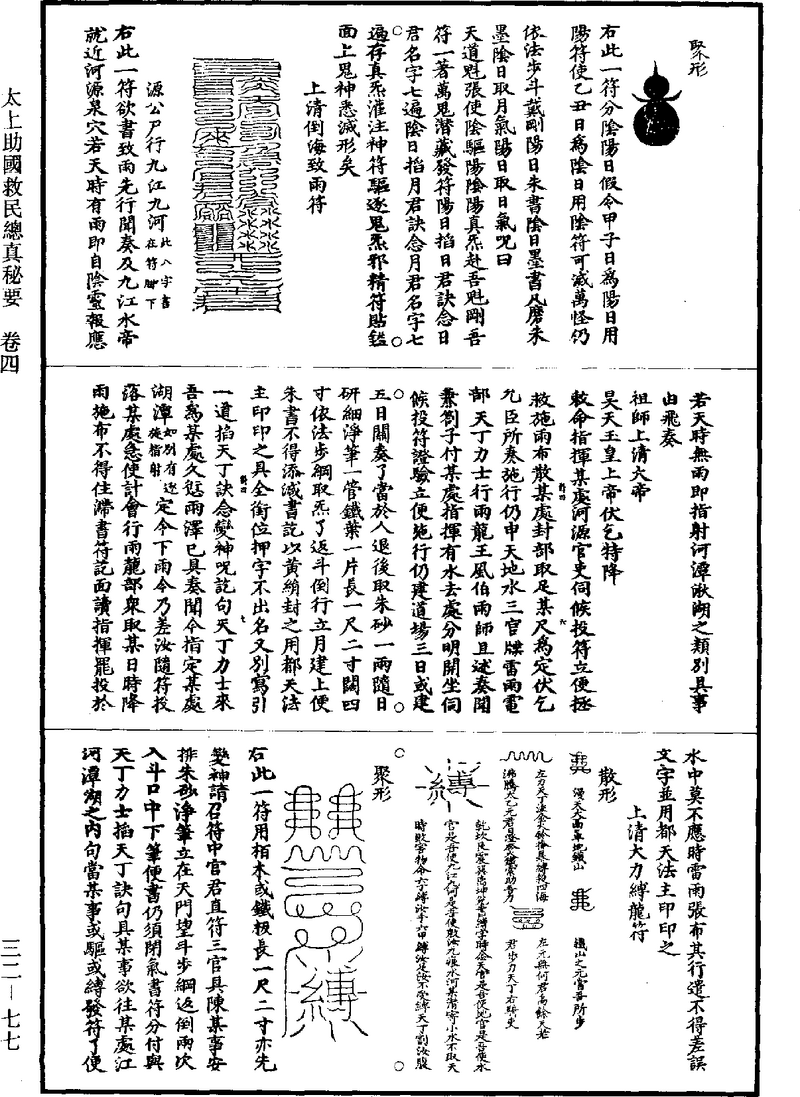 聚形
右此一符分陰陽日假令甲子日爲陽日用
陽符使乙丑日爲陰日用陰符可滅萬怪仍
依法步斗戴剛陽日朱書陰日墨書凡磨朱
墨陰日取月氣陽日取日氣呪曰
天道魁張使陰驅陽陰陽真炁赴吾魁剛吾
符一著萬鬼潛藏發符陽日掐日君訣念日
君名字七遍陰日掐月君訣念月君名字七
遍存真炁灌注神符驅逐鬼炁邪精符貼鎰
面上鬼神悉滅形矣
上清倒海致雨符
源公尸行九江九河此八字書在符脚下
右此一符欲書致雨先行關奏及九江水帝
就近河源泉穴若天時有雨即自陰靈報應
若天時無雨即指射河潭湫湖之類別具事
由飛奏
祖師上清大帝
昊天玉皇上帝伏乞特降
敕命指揮某處河源官吏伺候投符立便拯
救施雨布散某處封部取足某尺爲定伏乞
允臣所奏施行仍申天地水三官牒雷雨電
部天丁力士行雨龍王風伯雨師且述奏聞
兼劄子付某處指揮有水去處分明開坐伺
候投符證驗立便施行仍建道場三日或建
五日關奏了當於人退後取朱砂一兩隨日
研細淨筆一管鐵葉一片長一尺二寸闊四
寸依法步綱取炁了返斗倒行立月建上便
朱書不得添減書訖以黃絹封之用都天法
主印印之具全銜位押字不出名又別寫引
一道掐天丁訣念變神呪訖句天丁力士來
吾爲某處久愆雨澤已具奏聞令指定某處
湖潭如別有逐旋指射定今下雨令乃差汝隨符投
落某處急使計會行雨龍部衆取某日時降
雨拖布不得住滯書符訖面讀指揮罷投於
水中莫不應時當雨張布其行遣不得差誤
文字並用都天法主印印之
上清大力縛龍符
散形
聚形
右此一符用栢木或鐵板長一尺二寸亦先
變神請召符中官君直符三官具陳某事安
排朱砂淨筆立在天門望斗步綱返倒兩次
入斗口中下筆便書仍須閉氣書符分付與
天丁力士掐天丁訣句具某事欲往某處江
河潭湖之内句當某事或驅或縛發符了便
太上助國救民總真秘要 卷四
三二—七七